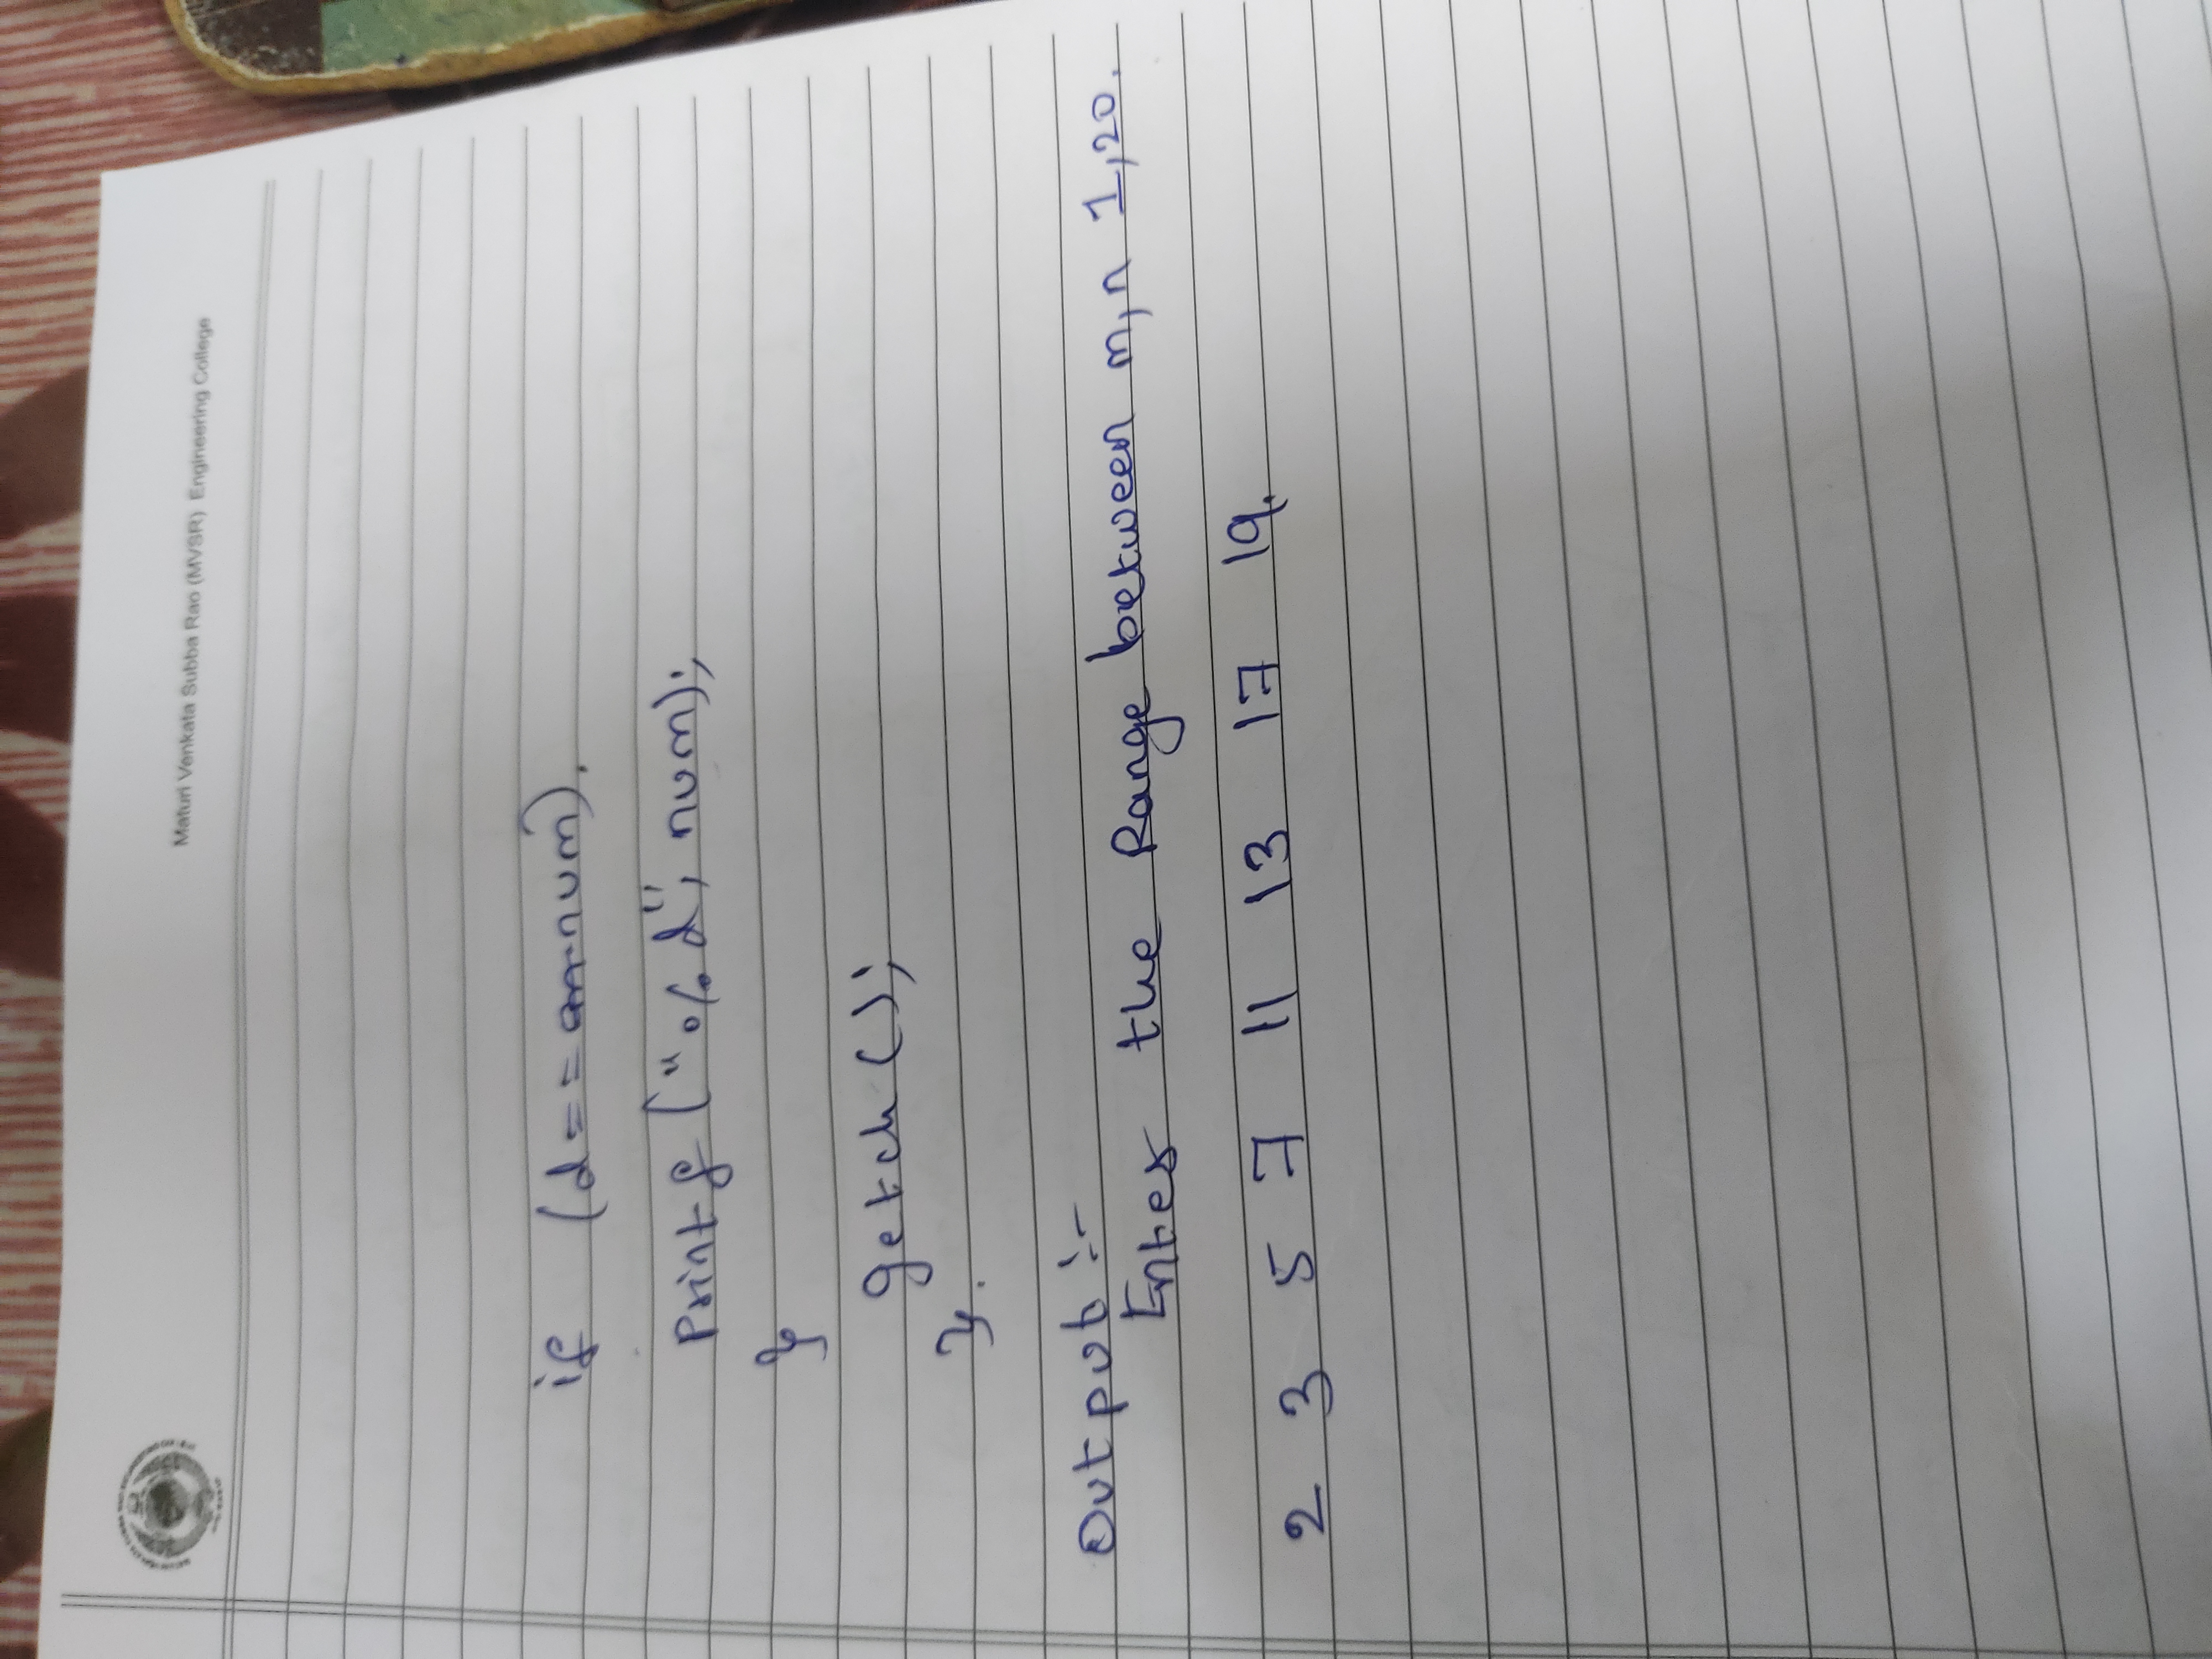 Maturi Venkata Subba Rao (MVSR) Engineering College
if (d == num).
printf ("%d", num);
}
getch ();
}.
Output :-
Enter the Range between m, n 1, 20.
2 3 5 7 11 13 17 19.